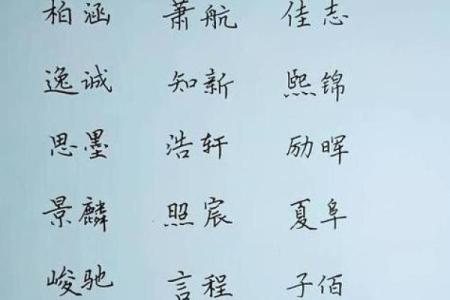 柏涵 萧航 佳志
逸诚 知新 熙锦
思墨 浩轩 励晖
景麟 照宸 夏阜
峻驰 言程 子佰